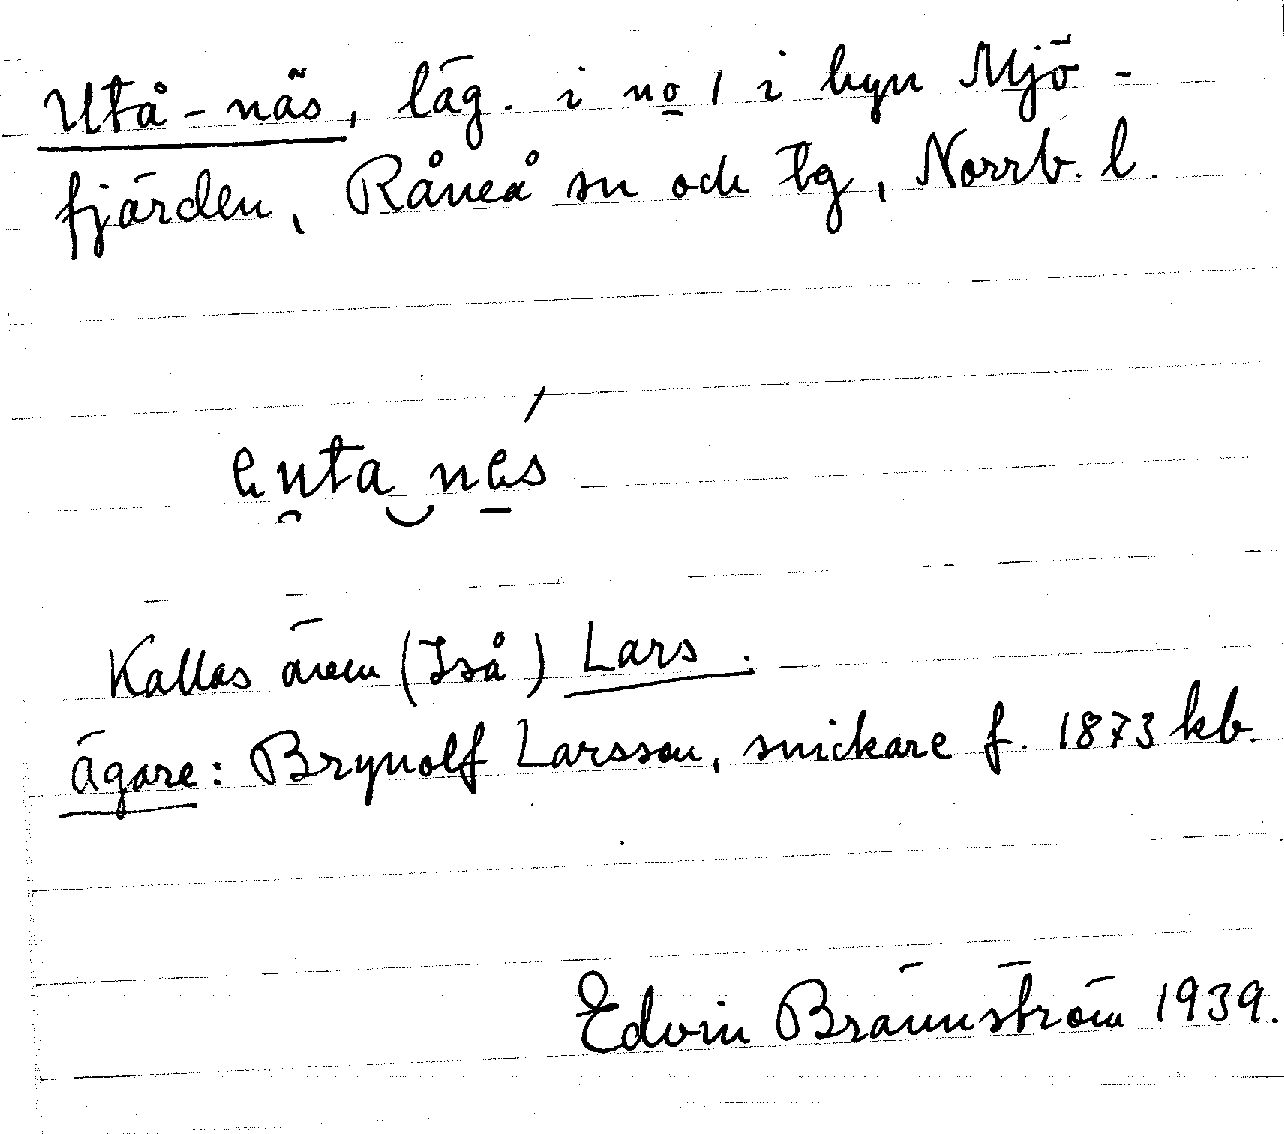 Utå-näs, läg. i no 1 i byn Mjö-
fjärden, Råneå sn och tg, Norrb. l.
e̯uta‿nes
Kallas även (Iså) Lars.
ägare: Brynolf Larsson, snickare f. 1873 kb.
Edvin Brännström 1939.